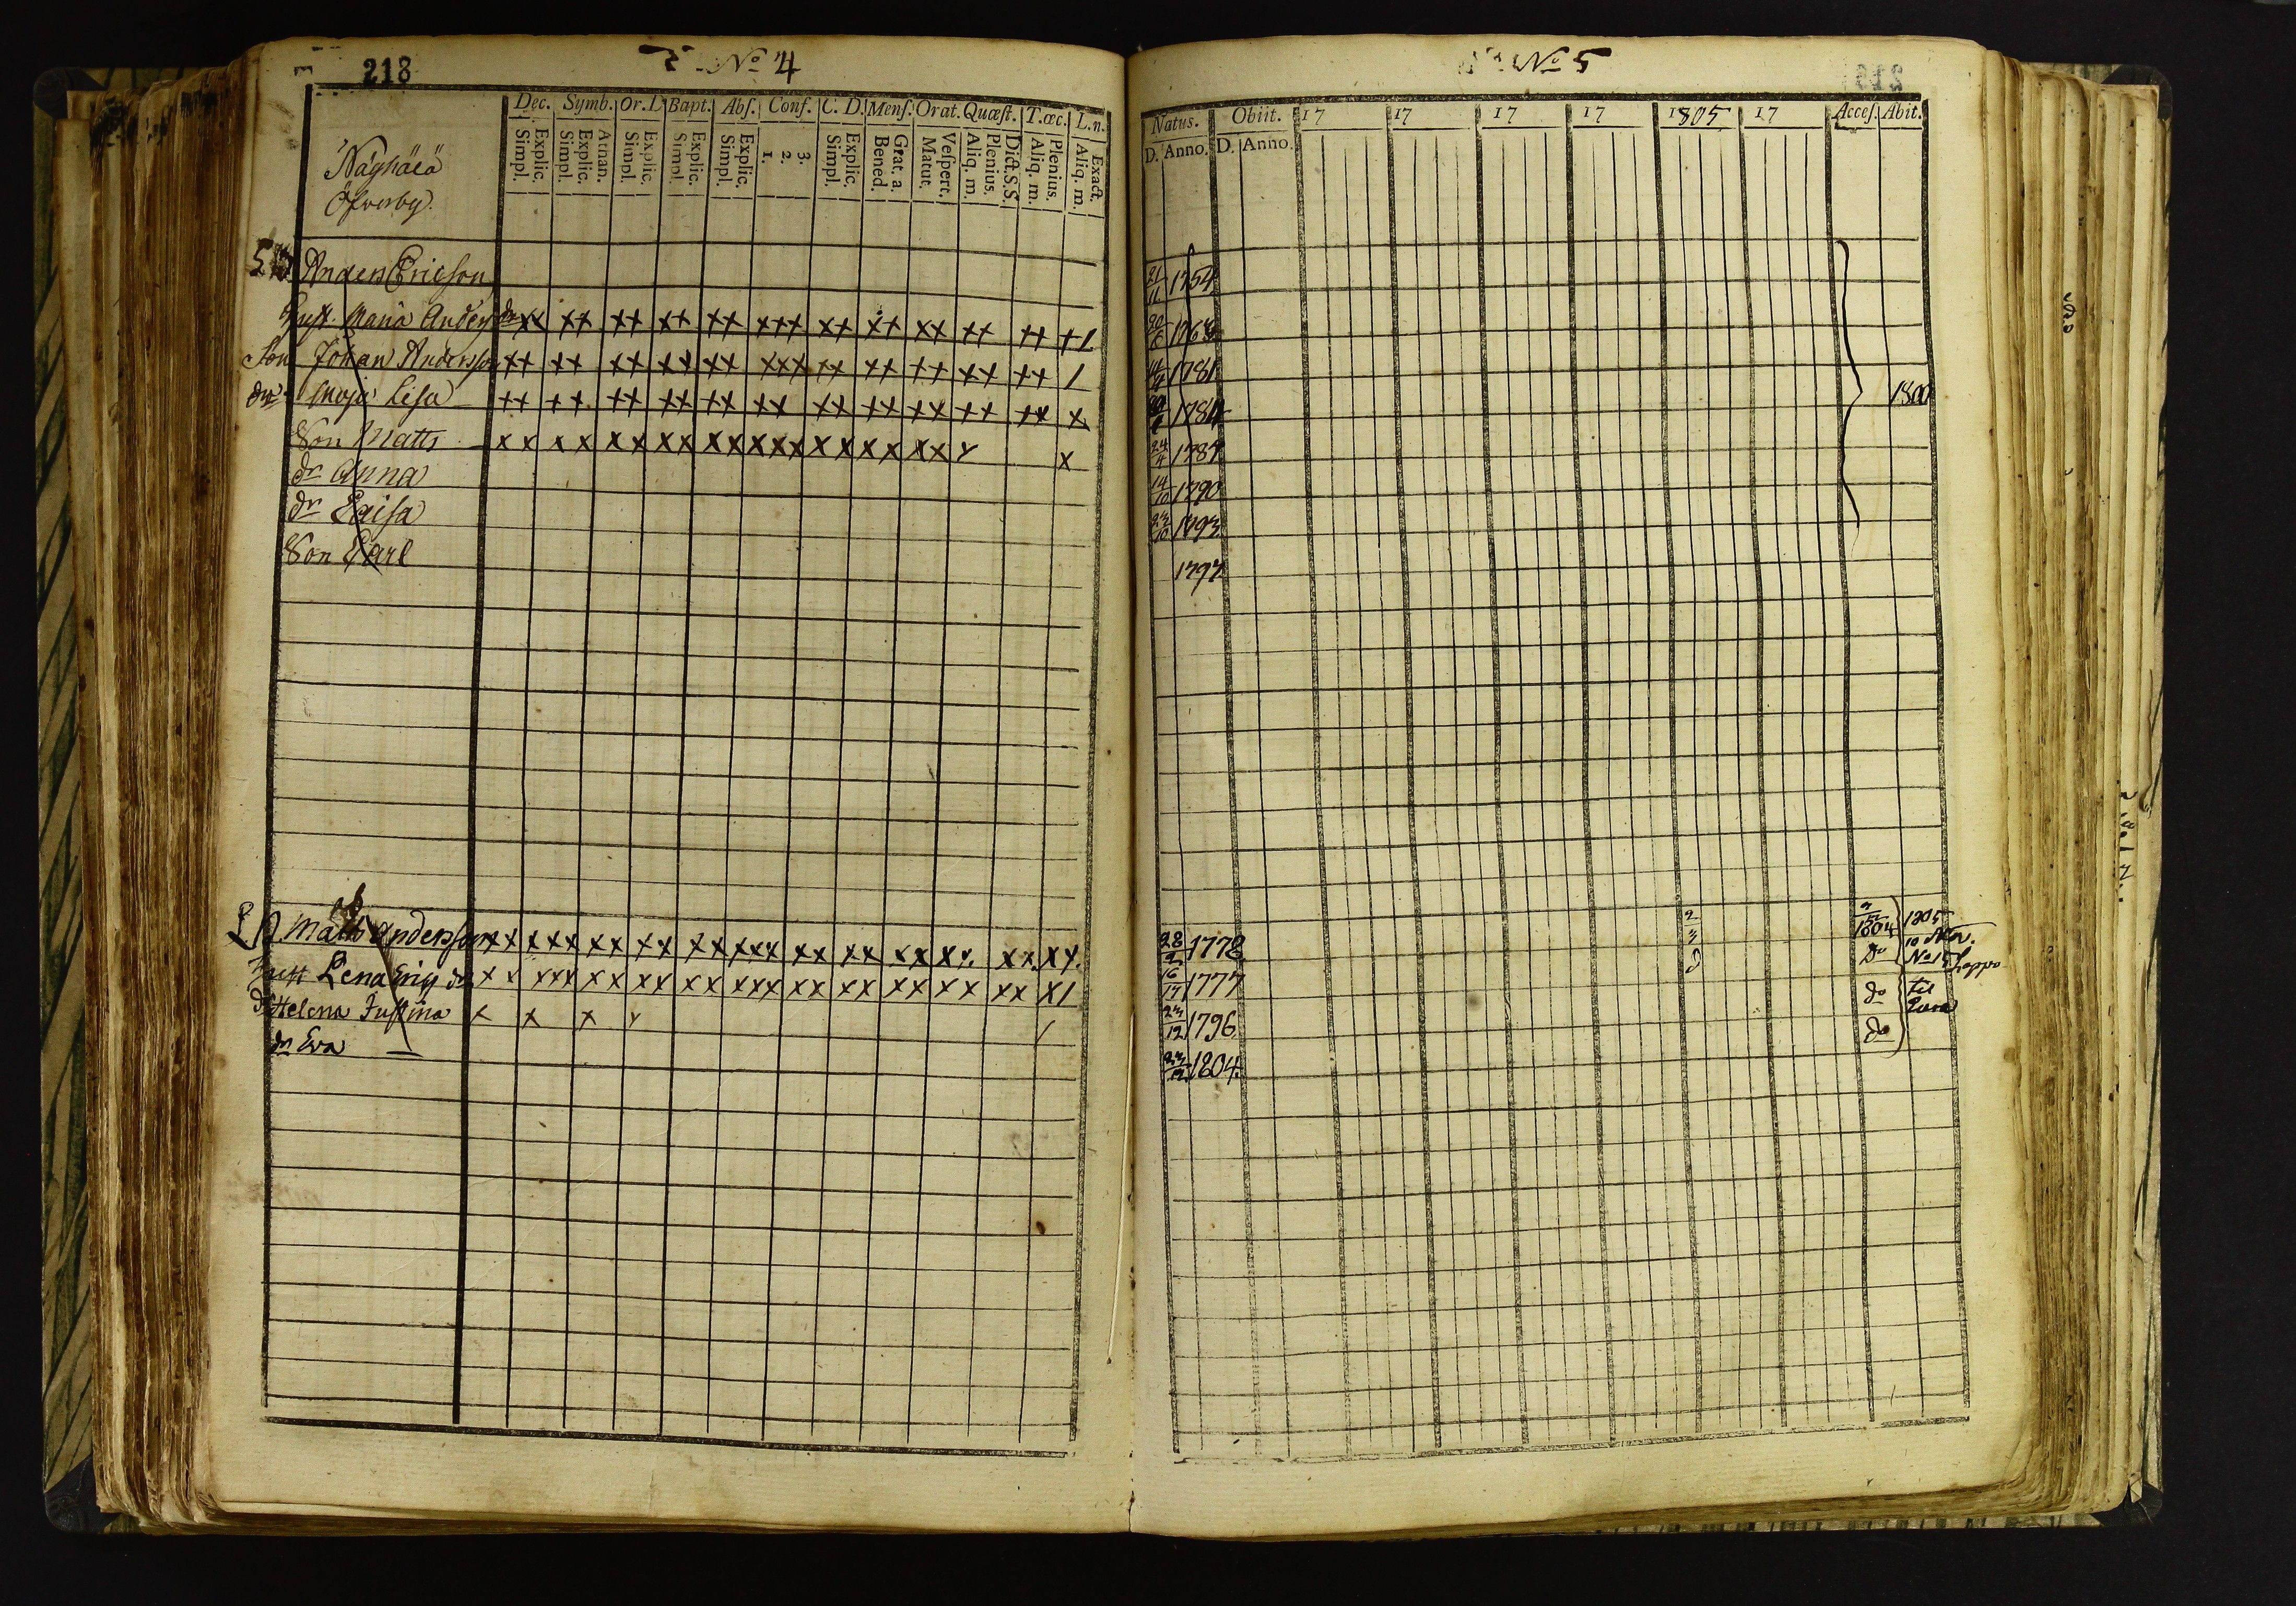 218
No 4
Dec. Symb. Or. D. Bapt. Abs. Conf. C. D. Mens. Orat. Quæst. T. œc. L. n.
Explic. Simpl. Athan. Explic. Simpl. Explic. Simpl. Explic. Simpl. Explic. Simpl. 3. 2. 1. Explic. Simpl. Grat. a. Bened. Vespert. Matut. Dict. S. S. Plenius. Aliq. m. Plenius. Aliq. m. Exact. Aliq. m.
Öfverby.
Anders Ericson
Hust. Maria Anders dr xx xx xx xx xx xxx xx xx xx xx xx x1
Son Johan Andersson xx xx xx xx xx xxx xx xx xx xx xx 1
dr Maja Lisa xx xx xx xx xx xx xx xx xx xx xx x
Son Matts xx xx xx xx xx xxx xx xx xx x x
dr Anna
dr Caisa
Son Carl
Matts Andersson xx xxx xx xx xx xxx xx xx xx xx. xx. xx.
Hust Lena Eric dr xx xxx xx xx xx xxx xx xx xx xx xx x1
dr Helena Justina x x x x /
dr Eva
No 5
Natus. Obiit. 17 17 17 17 1805 17 Acces. Abit.
D. Anno. D. Anno.
21/11 1754
1781
1800
24/4 1787
14/10 1790
23/10 1793
1797
28/9 1778
1805
1804
Do
10 Nov.
No 15 Lappo
1777
do
til
23/12 1796
do
23/12 1804.